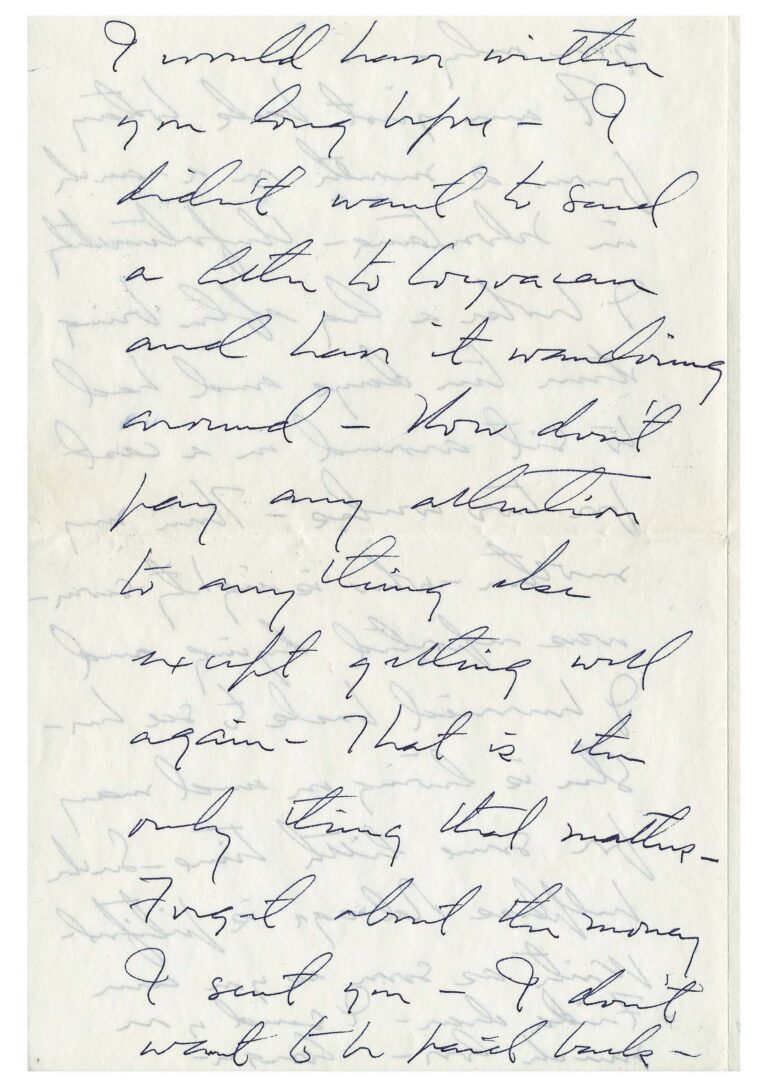 I would have written
you long before – I
didn't want to send
a letter to Coyoacan
and have it wandering
around – Now don't
pay any attention
to anything else
except getting well
again – That is the
only thing that matters –
Forget about the money
I sent you – I don't
want to be paid back –